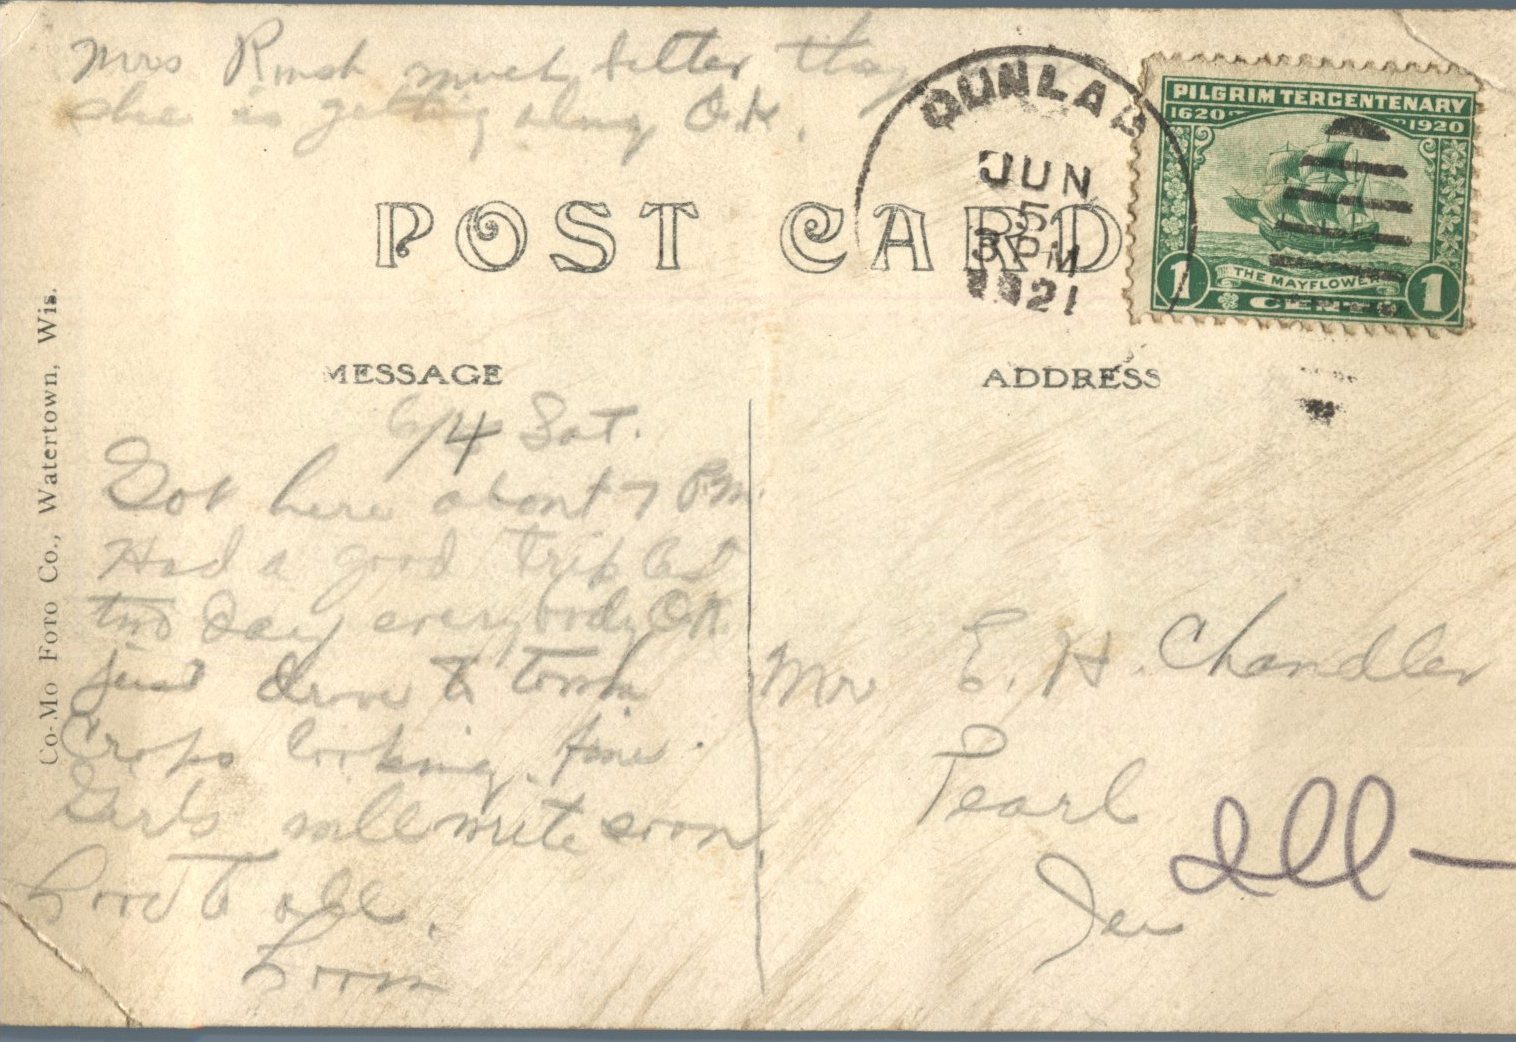 Mrs much better they
she is getting along O.K.
DUNLAP
JUN
5
3 PM
1921
PILGRIM TERCENTENARY
1620 1920
THE MAYFLOWER
1 CENTS 1
POST CARD
Co-Mo Foto Co., Watertown, Wis.
MESSAGE
ADDRESS
6/4 Sat.
Got here about 7 P.M.
Had a good trip
two Day everybody O.K.
just drove to town
Crops looking fine.
Girls will write soon.
Love to all.
Mr E. H. Chandler
Pearl
Ill